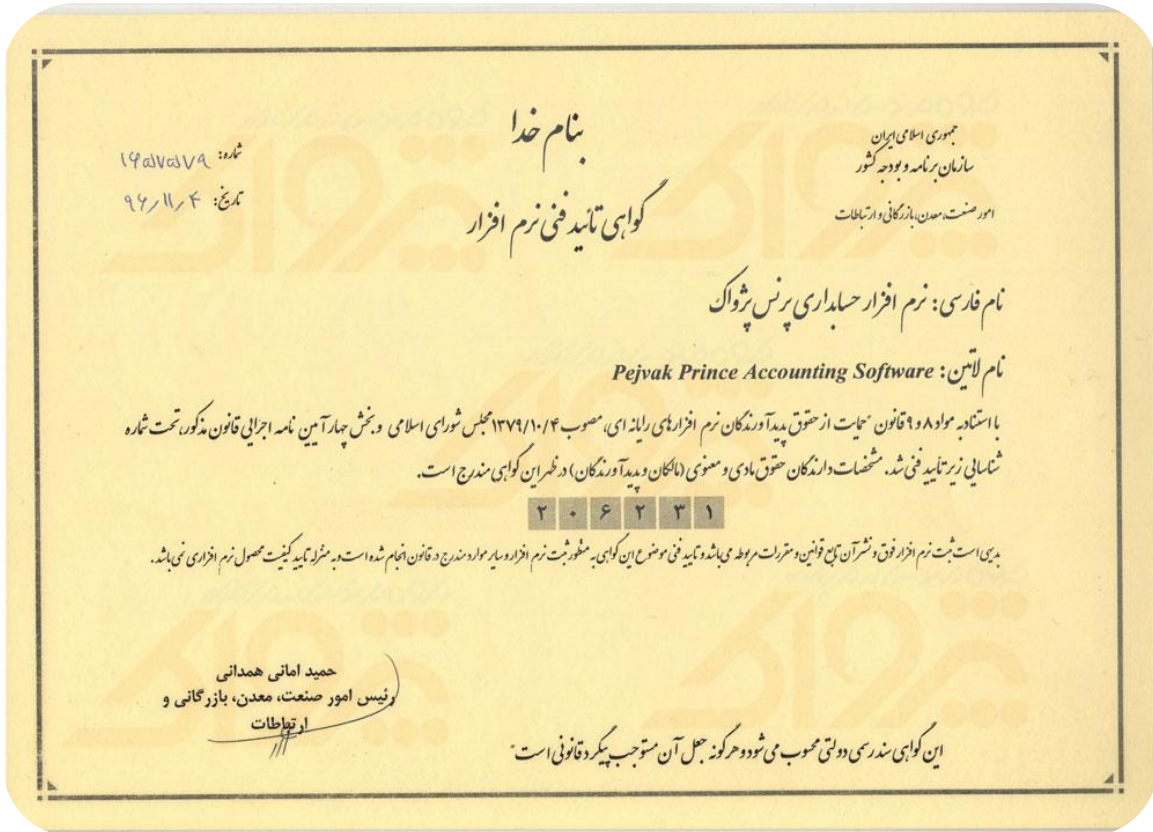 بنام خدا
جمهوری اسلامی ایران
سازمان برنامه و بودجه کشور
امور صنعت، معدن، بازرگانی و ارتباطات
شماره:
تاریخ: ۹۶/۱۱/۴
گواهی تائید فنی نرم افزار
نام فارسی: نرم افزار حسابداری پرنس پژواک
نام لاتین: Pejvak Prince Accounting Software
با استناد به مواد ۸ و ۹ قانون "حمایت از حقوق پدیدآورندگان نرم افزارهای رایانه ای، مصوب ۱۳۷۹/۱۰/۴ مجلس شورای اسلامی و بخش چهار آیین نامه اجرایی قانون مذکور، تحت شماره
شناسایی زیر تأیید فنی شد. مشخصات دارندگان حقوق مادی و معنوی (مالکان و پدیدآورندگان) در ظهر این گواهی مندرج است.
۲۰۶۲۳۱
بدیهی است ثبت نرم افزار فوق و نشر آن تابع قوانین و مقررات مربوطه می باشد و تایید فنی موضوع این گواهی به منظور ثبت نرم افزار و سایر موارد مندرج در قانون انجام شده است و به منزله تایید کیفیت محصول نرم افزاری نمی باشد.
حمید امانی همدانی
رئیس امور صنعت، معدن، بازرگانی و
ارتباطات
این گواهی سند رسمی دولتی محسوب می شود و هرگونه جعل آن مستوجب پیگرد قانونی است"
پژواک